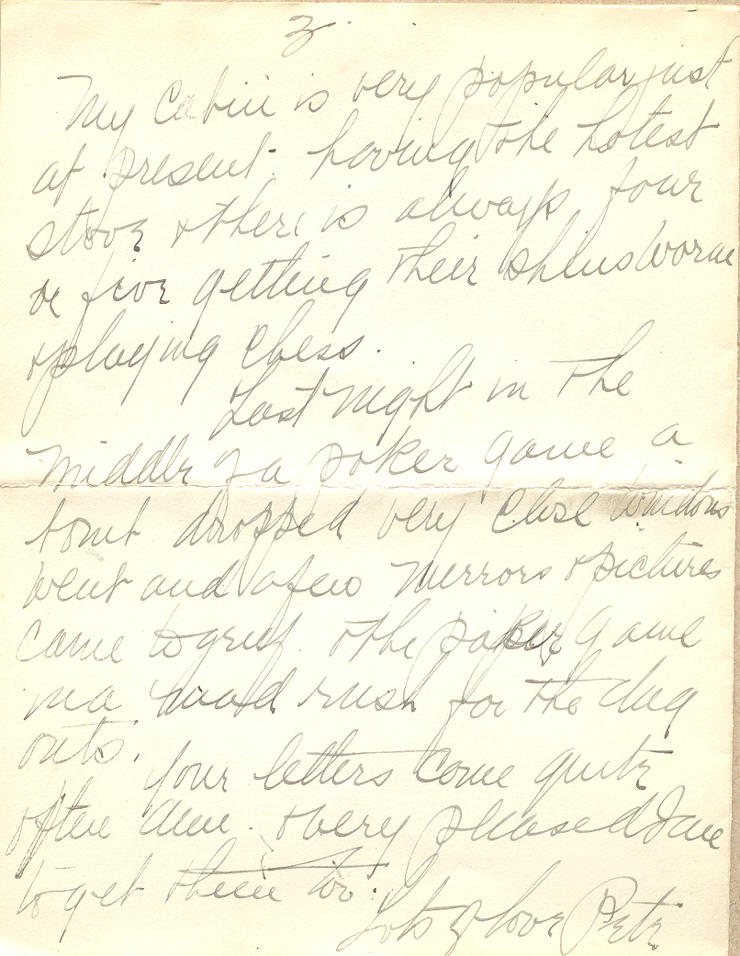 3.
My Cabin is very popular just
at present. having the hotest
stove & there is always four
or five getting their shins warm
& playing chess.
Last night in the
middle of a poker game a
bomb dropped very close windows
went and a few mirrors & pictures
came to grief. & the poker game
in a mad rush for the dug
outs.
Your letters come quite
often Aune. & very pleased I am
to get them too.
Lots of love Pete